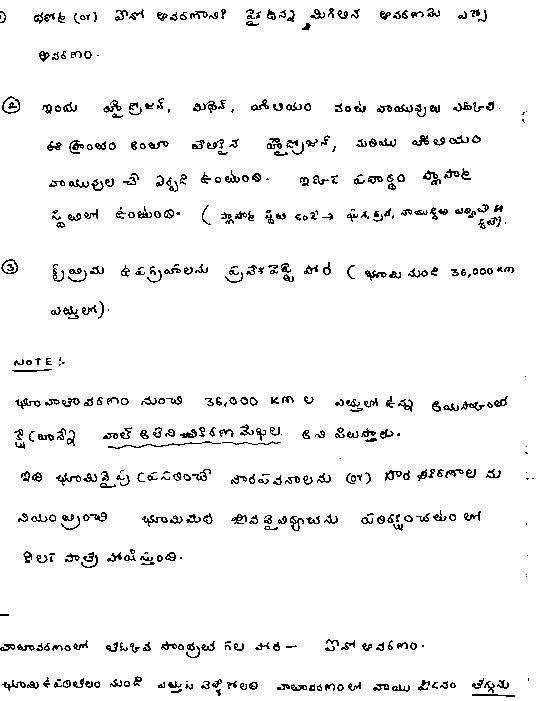 థర్మో (or) ఐనో ఆవరణానికి పైన ఉన్న మిగిలిన ఆవరణమే ఎక్సో
ఆవరణం.
② ఇందు హైడ్రోజన్, మీథేన్, హీలియం వంటి వాయువులు ఎక్కువ.
ఈ ప్రాంతం కంటూ తేలికైన హైడ్రోజన్, మరియు హీలియం
వాయువుల చే ఏర్పడి ఉంటుంది. ఇక్కడ పదార్థం ప్లాస్మా
స్థితిలో ఉంటుంది. ( ప్లాస్మా స్థితి అంటే → ఘన, ద్రవ, వాయు
③ కృత్రిమ ఉపగ్రహాలను ప్రవేశపెట్టే పొర ( భూమి నుండి 36,000 km
ఎత్తులో).
NOTE :-
భూవాతావరణం నుంచి 36,000 km ల ఎత్తులో ఉన్న అయస్కాంత
క్షేత్రాన్నే వాల్ అలెన్ వికిరణ మేఖల అని పిలుస్తారు.
ఇది భూమివైపు ప్రసరించే సౌరపవనాలను (or) సౌర కిరణాల ను
నియంత్రించి భూమిమీద జీవవైవిధ్యతను పరిరక్షించుటలో
కీలక పాత్ర పోషిస్తుంది.
వాతావరణంలో తక్కువ సాంద్రత గల పొర - ఐనో ఆవరణం.
భూమి ఉపరితలం నుండి ఎత్తుకు వెళ్ళేకొలది వాతావరణంలో వాయు పీడనం తగ్గును